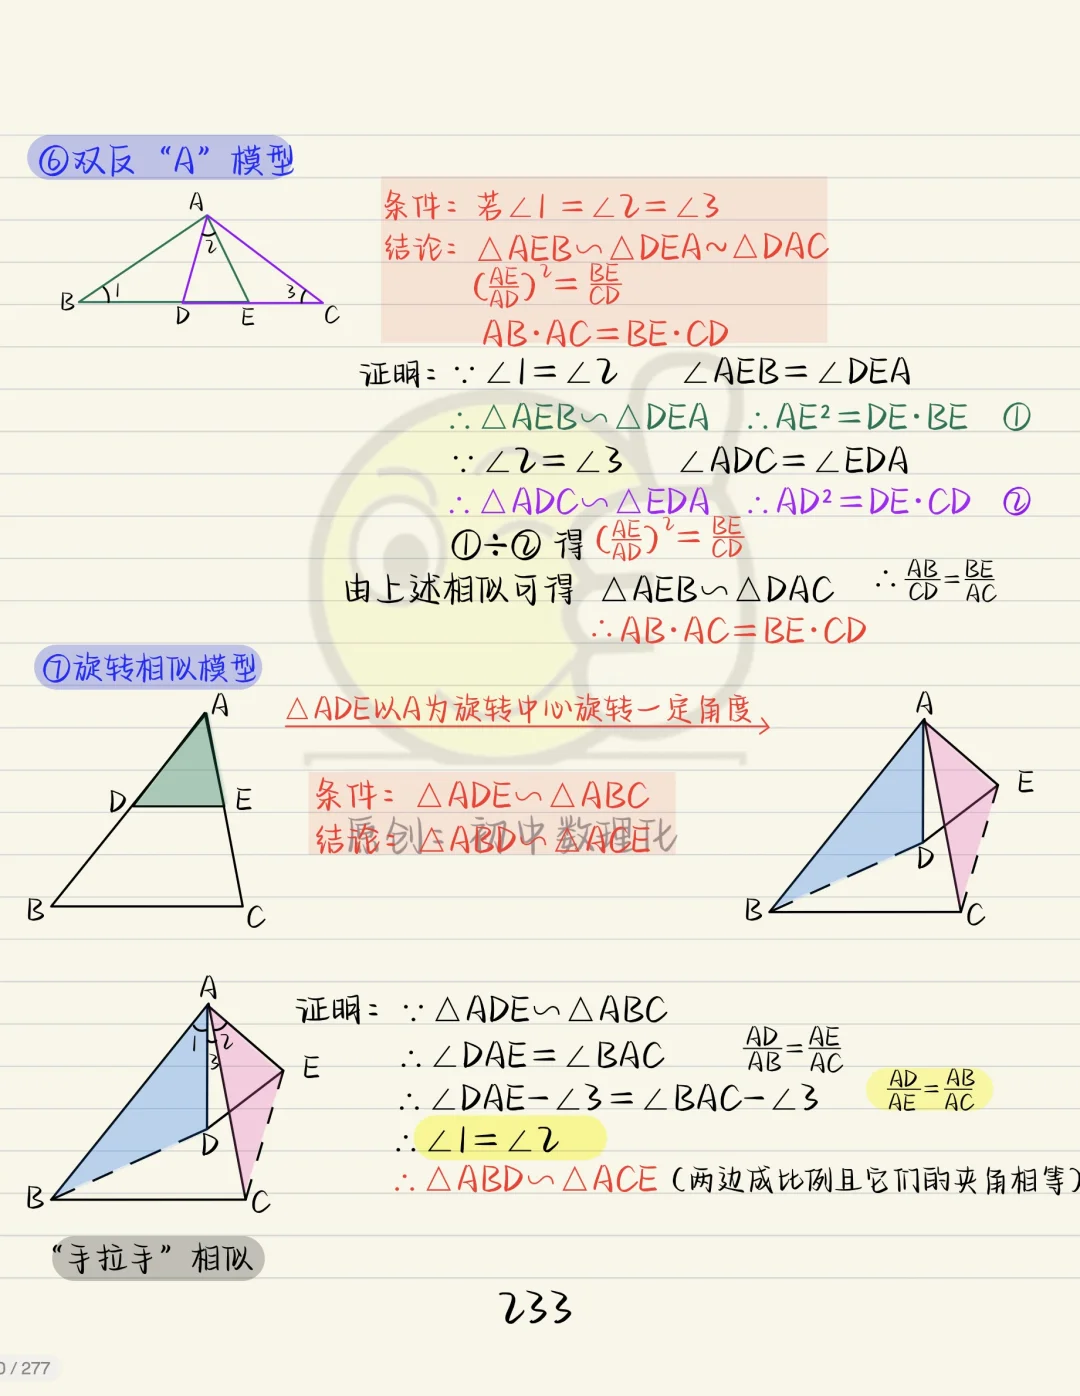 ⑥双反“A”模型
A
2
B
1
3
D
E
C
条件：若∠1=∠2=∠3
结论：△AEB∽△DEA~△DAC
(AE/AD)²=BE/CD
AB·AC=BE·CD
证明：∵∠1=∠2 ∠AEB=∠DEA
∴△AEB∽△DEA ∴AE²=DE·BE ①
∵∠2=∠3 ∠ADC=∠EDA
∴△ADC∽△EDA ∴AD²=DE·CD ②
①÷②得(AE/AD)²=BE/CD
由上述相似可得 △AEB∽△DAC ∴AB/CD=BE/AC
∴AB·AC=BE·CD
⑦旋转相似模型
A
D
E
B
C
△ADE以A为旋转中心旋转一定角度
条件：△ADE∽△ABC
结论：△ABD∽△ACE
原创：初中数理化
A
E
D
B
C
A
1
2
3
E
D
B
C
证明：∵△ADE∽△ABC
∴∠DAE=∠BAC AD/AB=AE/AC
∴∠DAE-∠3=∠BAC-∠3 AD/AE=AB/AC
∴∠1=∠2
∴△ABD∽△ACE(两边成比例且它们的夹角相等)
“手拉手”相似
233
0/277